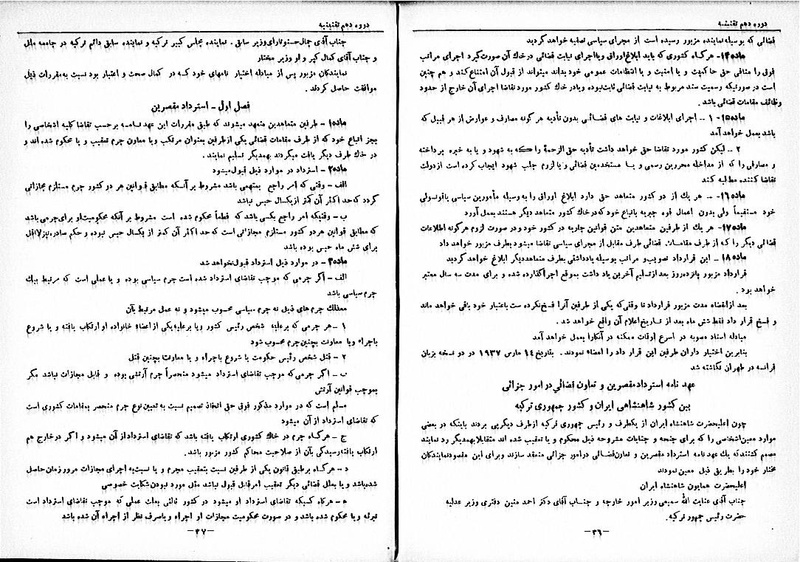 دوره دهم تقنینیه
قضائی که بوسیله نماینده مزبور رسیده است از مجرای سیاسی تصفیه خواهد گردید
ماده ۱۴ - هرگاه کشوری که باید ابلاغ اوراق و یا اجرای نیابت قضائی در خاک آن صورت گیرد اجرای مراتب
فوق را منافی حق حاکمیت و یا امنیت و یا انتظامات عمومی خود بداند میتواند از قبول آن امتناع کند و هم چنین
است در صورتیکه رسمیت سند مربوط به نیابت قضائی ثابت نبوده و یا در خاک کشور مورد تقاضا اجرای آن خارج از حدود
وظائف مقامات قضائی باشد.
ماده ۱۵ - ۱ - اجرای ابلاغات و نیابت های قضائی بدون تأدیه هرگونه مصارف و عوارض از هر قبیل که
باشد بعمل خواهد آمد
۲ - لیکن کشور مورد تقاضا حق خواهد داشت تأدیه حق الزحمهٔ را که به شهود و یا به خبره پرداخته
و مصارفی را که از مداخله محررین رسمی و یا مستخدمین قضائی و یا لزوم جلب شهود ایجاب کرده است از دولت
تقاضا کننده مطالبه کند
ماده ۱۶ - هر یک از دو کشور متعاهد حق دارد ابلاغ اوراق را به وسیله مأمورین سیاسی یا قونسولی
خود مستقیماً ولی بدون اعمال قوه جبریه باتباع خود که در خاک کشور متعاهد دیگر هستند بعمل آورد
ماده ۱۷ - هر یک از طرفین متعاهدین متن قوانین جاریه در کشور خود و در صورت لزوم هرگونه اطلاعات
قضائی دیگر را که از طرف مقامات قضائی طرف مقابل از مجرای سیاسی تقاضا میشود بطرف مزبور خواهد داد
ماده ۱۸ - این قرارداد تصویب و مراتب بوسیله یادداشتی بطرف متعاهد دیگر ابلاغ خواهد گردید
قرارداد مزبور پانزده روز بعد از تسلیم آخرین یاد داشت بموقع اجرا گذارده شده و برای مدت سه سال معتبر
خواهد بود.
بعد از انقضاء مدت مزبور قرارداد تا وقتی که یکی از طرفین آنرا فسخ نکرده ست باعتبار خود باقی خواهد ماند
و فسخ قرار داد فقط شش ماه بعد از تاریخ اعلام آن واقع خواهد شد.
مبادله اسناد مصوبه در اسرع اوقات ممکنه در آنکارا بعمل خواهد آمد
بنابرین اختیار داران طرفین این قرار داد را امضاء نمودند. بتاریخ ۱۴ مارس ۱۹۳۷ در دو نسخه بزبان
فرانسه در طهران نگاشته شد
عهد نامه استرداد مقصرین و تعاون قضائی در امور جزائی
بین کشور شاهنشاهی ایران و کشور جمهوری ترکیه
چون اعلیحضرت شاهنشاه ایران از یکطرف و رئیس جمهوری ترکیه از طرف دیگر پی بردند باینکه در بعضی
موارد معین اشخاصی را که برای جنحه و جنایات مشروحه ذیل محکوم و یا تعقیب شده اند متقابلا بهمدیگر رد نمایند
مصمم گشتند که یک عهد نامه استرداد مقصرین و تعاون قضائی در امور جزائی منعقد سازند و برای این مقصود نمایندگان
مختار خود را بطریق ذیل معین نمودند
اعلیحضرت همایون شاهنشاه ایران
جناب آقای عنایت الله سمیعی وزیر امور خارجه و جناب آقای دکتر احمد متین دفتری وزیر عدلیه
حضرت رئیس جمهور ترکیه.
-۳۶-
دوره دهم تقنینیه
وزیر سابق. نماینده مجلس کبیر ترکیه و نماینده سابق دائم ترکیه در جامعه ملل
و جناب آقای کمال کپر او وزیر مختار
نمایندگان مزبور پس از مبادله اختیار نامهای خود که در کمال صحت و اعتبار بود نسبت به مقررات ذیل
موافقت حاصل کردند.
فصل اول - استرداد مقصرین
ماده ۱ - طرفین متعاهدین متعهد میشوند که طبق مقررات این عهد نامه بر حسب تقاضا کلیه اشخاصی را
بجز اتباع خود که از طرف مقامات قضائی یکی از طرفین بعنوان مرتکب و یا معاون جرم تعقیب و یا محکوم شده اند و
در خاک طرف دیگر یافت میگردند بهمدیگر تسلیم نمایند.
ماده ۲ - استرداد در موارد ذیل قبول میشود
الف - وقتی که امر راجع بمتهمی باشد مشروط بر آنکه مطابق قوانین هر دو کشور جرم مستلزم مجازاتی
گردد که حد اکثر آن کمتر از یکسال حبس نباشد
ب - وقتیکه امر راجع بکسی باشد که قطعاً محکوم شده است مشروط بر آنکه محکومیت او برای جرمی باشد
که مطابق قوانین هر دو کشور مستلزم مجازاتی است که حد اکثر آن کمتر از یکسال حبس نبوده و حکم صادره نیز لااقل
برای شش ماه حبس بوده باشد
ماده ۳ - در موارد ذیل استرداد قبول نخواهد شد
الف - اگر جرمی که موجب تقاضای استرداد شده است جرم سیاسی بوده و یا عملی است که مرتبط بیک
جرم سیاسی باشد
معذلک جرم های ذیل نه جرم سیاسی محسوب میشود و نه عمل مرتبط بآن
۱ - هر جرمی که بر علیه شخص رئیس کشور و یا بر علیه یکی از اعضاء خانواده او ارتکاب یافته و یا شروع
باجراء و یا معاونت بچنین جرم محسوب شود
۲ - قتل شخص رئیس حکومت یا شروع باجراء و یا معاونت بچنین قتل
ب - اگر جرمی که موجب تقاضای استرداد میشود منحصراً جرم ارتشی بوده و قابل مجازات نباشد مگر
بموجب قوانین ارتشی
مسلم است که در موارد مذکور فوق حق اتخاذ تصمیم نسبت به تعیین نوع جرم منحصر بمقامات کشوری است
که تقاضای استرداد از آن میشود
ج - هرگاه جرم در خاک کشوری ارتکاب یافته باشد که تقاضای استرداد از آن میشود و اگر در خارج هم
ارتکاب یافته رسیدگی بآن از صلاحیت محاکم کشور مزبور باشد.
د - هرگاه بر طبق قانون یکی از طرفین نسبت بتعقیب مجرم و یا نسبت به اجرای مجازات مرور زمان حاصل
شده باشد و یا بعلل قضائی دیگر تعقیب امر قابل قبول نباشد مثل مورد نبودن شکایت خصوصی
ه - هرگاه کسیکه تقاضای استرداد او میشود در کشور ثالثی بعلت عملی که موجب تقاضای استرداد است
تبرئه و یا محکوم شده باشد و در صورت محکومیت مجازات او اجراء و یا صرف نظر از اجراء آن شده باشد
-۳۷-